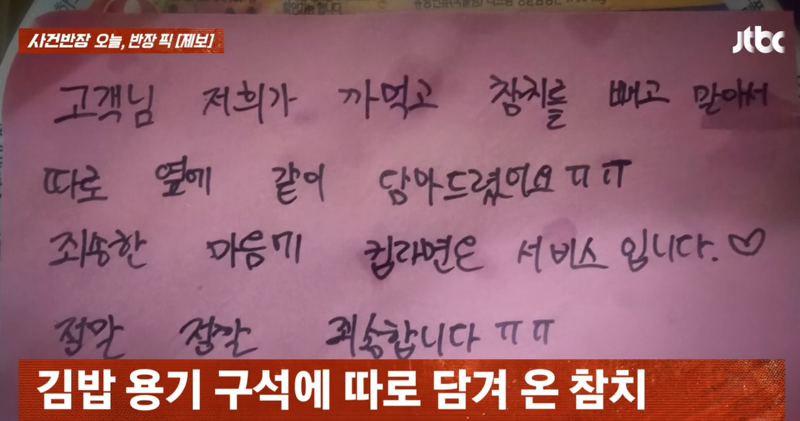 사건반장 오늘, 반장 픽 [제보]
jtbc
고객님 저희가 까먹고 참치를 빼고 말아서
따로 옆에 같이 담아드렸어요 ㅠㅠ
죄송한 마음에 컵라면은 서비스 입니다. ♡
정말 정말 죄송합니다 ㅠㅠ
김밥 용기 구석에 따로 담겨 온 참치